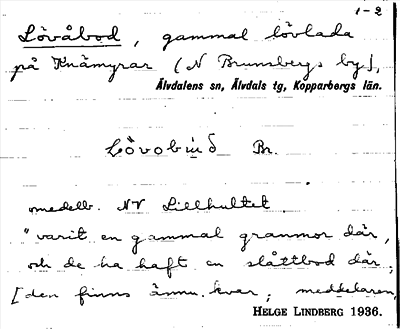 1-2
Lövåbod, gammal lövlada
på Knämyrar (N Brunsbergs by),
Älvdalens sn, Älvdals tg, Kopparbergs län.
Lövobuið Br.
medelb. NV Lillhultet.
"varit en gammal granmor där,
och de ha haft en slåttbod där;
[den finns ännu kvar; meddelaren,
HELGE LINDBERG 1936.